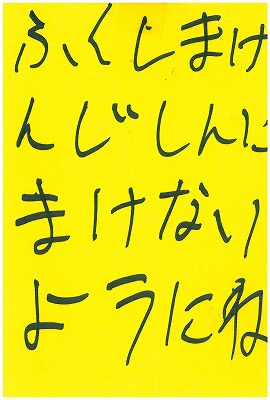 ふくしまけ
んじしんに
まけない
ようにね